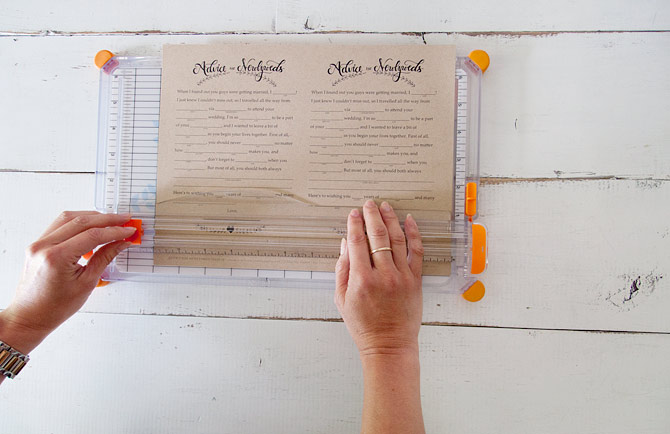 Advice for Newlyweds
When I heard you guys were getting married, I ________!
I just knew I couldn't miss out, so I travelled all the way from
________ via ________ to attend your
________ wedding. I'm so ________ to be a part
of your ________ and I wanted to leave a bit of
________ as you begin your lives together. First of all,
________ you should never ________ no matter
how ________ makes you, and
________ don't forget to ________ when you
________. But most of all, you should both always
Here's to wishing you ____ years of ________ and many
Love,
Advice for Newlyweds
When I heard you guys were getting married, I ________!
I just knew I couldn't miss out, so I travelled all the way from
________ via ________ to attend your
________ wedding. I'm so ________ to be a part
of your ________ and I wanted to leave a bit of
________ as you begin your lives together. First of all,
________ you should never ________ no matter
how ________ makes you, and
________ don't forget to ________ when you
________. But most of all, you should both always
Here's to wishing you ____ years of ________ and many